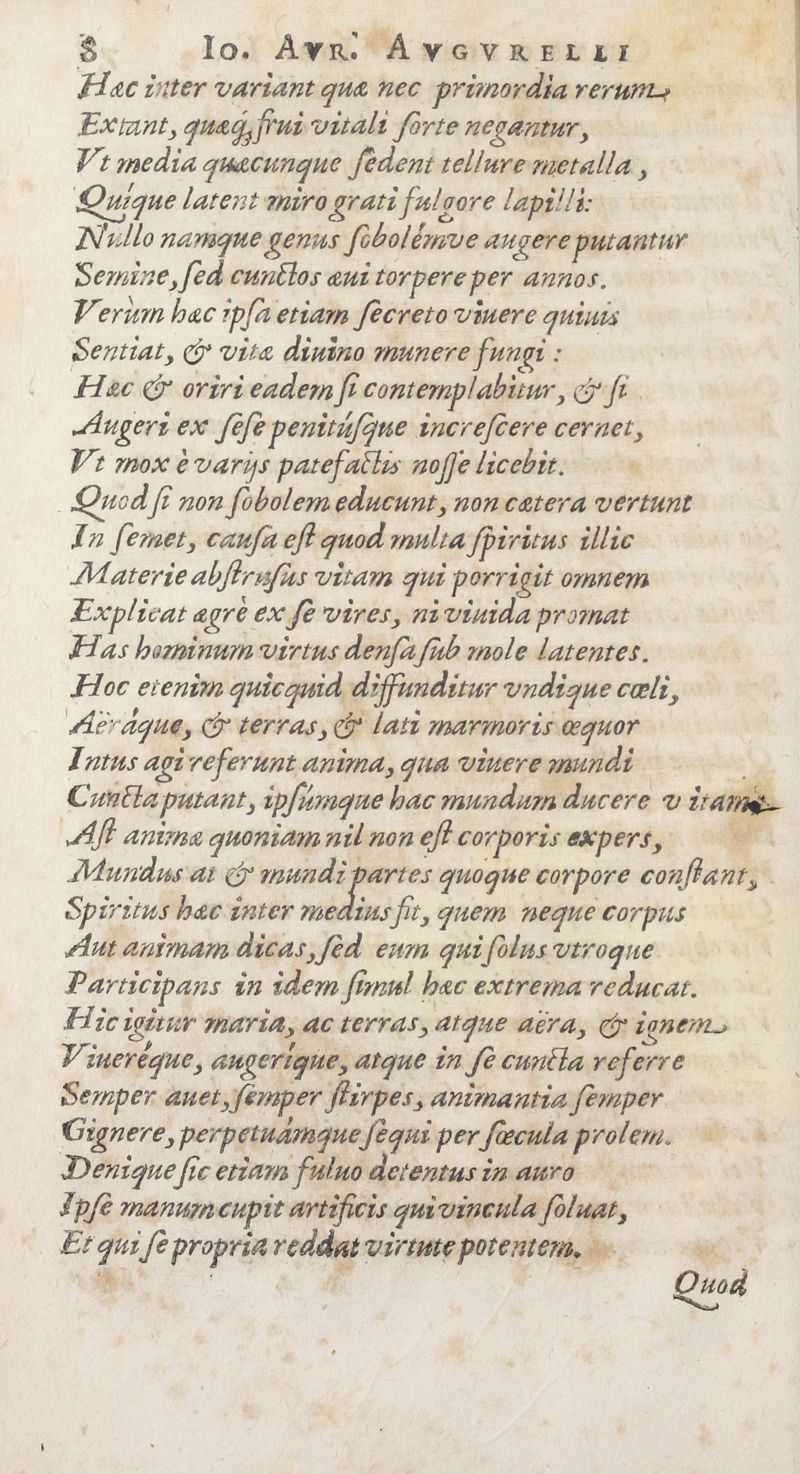 8 Io. Avr. Avgvrelli
Hæc inter variant quæ nec primordia rerum
Extant, quæq́; frui vitali ſorte negantur,
Vt media quæcunque ſedent tellure metalla,
Quíque latent miro grati fulgore lapilli:
Nullo namque genus ſobolémve augere putantur
Semine, ſed cunctos æui torpere per annos.
Verùm hæc ipſa etiam ſecreto viuere quiuis
Sentiat, & vitæ diuino munere fungi:
Hæc & oriri eadem ſi contemplabitur, & ſi
Augeri ex ſeſe penitúſque increſcere cernet,
Vt mox è varijs patefactis noſſe licebit.
Quod ſi non ſobolem educunt, non cætera vertunt
In ſemet, cauſa eſt quod multa ſpiritus illic
Materie abſtruſus vitam qui porrigit omnem
Explicat ægrè ex ſe vires, ni viuida promat
Has hominum virtus denſa ſub mole latentes.
Hoc etenim quicquid diffunditur vndique cœli,
Aëráque, & terras, & lati marmoris œquor
Intus agi referunt anima, qua viuere mundi
Cuncta putant, ipſúmque hac mundum ducere vitam
Aſt animæ quoniam nil non eſt corporis expers,
Mundus at & mundi partes quoque corpore conſtant,
Spiritus hæc inter medius fit, quem neque corpus
Aut animam dicas, ſed eum qui ſolus vtroque
Participans in idem ſimul hæc extrema reducat.
Hic igitur maria, ac terras, atque aëra, & ignem
Viueréque, augeríque, atque in ſe cuncta referre
Semper auet, ſemper ſtirpes, animantia ſemper
Gignere, perpetuámque ſequi per ſœcula prolem.
Denique ſic etiam fuluo detentus in auro
Ipſe manum cupit artificis qui vincula ſoluat,
Et qui ſe propria reddat virtute potentem.
Quod